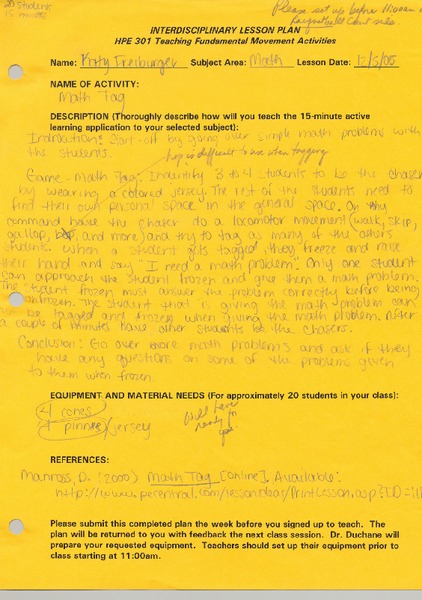 20 students
15 minutes
Please set up before 11:00am on
Racquetball Court side.
INTERDISCIPLINARY LESSON PLAN
HPE 301 Teaching Fundamental Movement Activities
Name: Katy Freiburger Subject Area: Math Lesson Date: 12/5/05
NAME OF ACTIVITY:
Math Tag
DESCRIPTION (Thoroughly describe how will you teach the 15-minute active
learning application to your selected subject):
Indroction: Start-off by going over simple math problems with
the students.
hop is difficult to use when tagging
Game - Math Tag: Indentify 3 to 4 students to be the chaser
by wearing a colored jersey. The rest of the students need to
find their own personal space in the general space. On my
command have the chaser to a locomotor movement (walk, skip,
gallop, hop, and more) and try to tag as many of the others
students. When a student gets tagged they freeze and raise
their hand and say "I need a math problem". Only one student
can approach the student frozen and give them a math problem.
The student frozen must answer the problem correctly before being
unfrozen. The student that is giving the math problem can
not be tagged and frozen when giving the math problem. After
a couple of minutes have other students be the chasers.
Conclusion: Go over more math problems and ask if they
have any questions on some of the problems given
to them when frozen.
EQUIPMENT AND MATERIAL NEEDS (For approximately 20 students in your class):
4 cones
pinnee/jersey
Will have
ready for
you
REFERENCES:
Manross, D. (2000) Math Tag [Online]. Available:
http://www.pecentral.com/lessonideas/PrintLesson.asp?ID=
Please submit this completed plan the week before you signed up to teach. The
plan will be returned to you with feedback the next class session. Dr. Duchane will
prepare your requested equipment. Teachers should set up their equipment prior to
class starting at 11:00am.